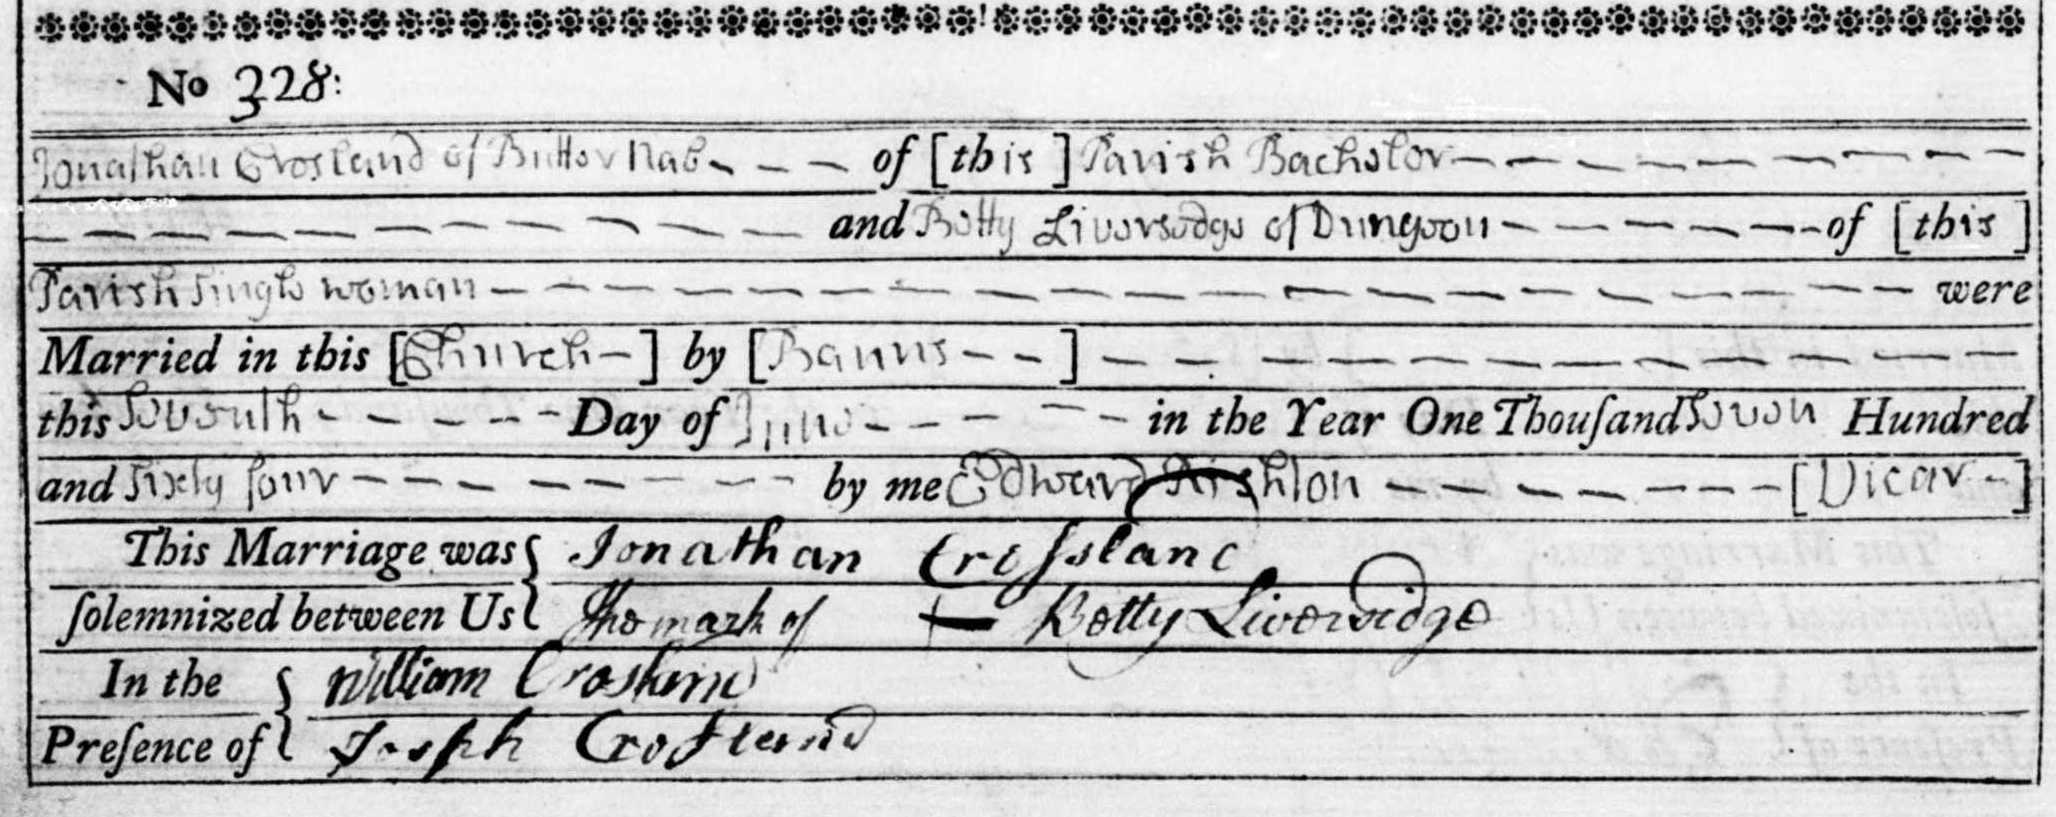 No 328:
Jonathan Crosland of Butter Nab - - - of [this] Parish Bachelor
and Betty Liversedge of Dungeon of [this]
Parish Single woman were
Married in this [Church -] by [Banns - -]
this Seventh Day of June in the Year One Thouſand Seven Hundred
and Sixty four by me Edward Rishton [Vicar -]
This Marriage was { Jonathan Croſsland
ſolemnized between Us { The mark of + Betty Liversidge
In the { William Crosland
Preſence of { Joseph Crosland